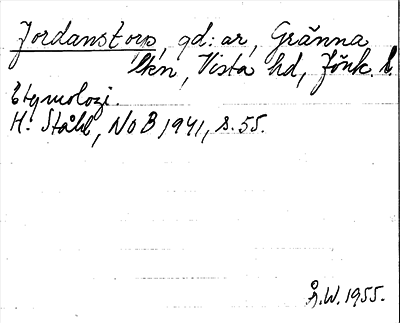 Jordanstorp, gd:ar, Gränna
lkn, Vista hd, Jönk. l.
Etymologi.
H. Ståhl, NoB 1941, s. 55.
Å.W. 1955.